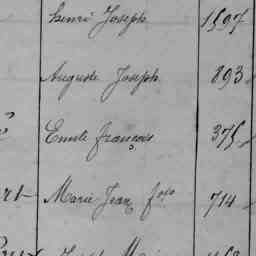 henri Joseph 1597
Auguste Joseph 893
Emile françois 375
Marie Jean fois 714